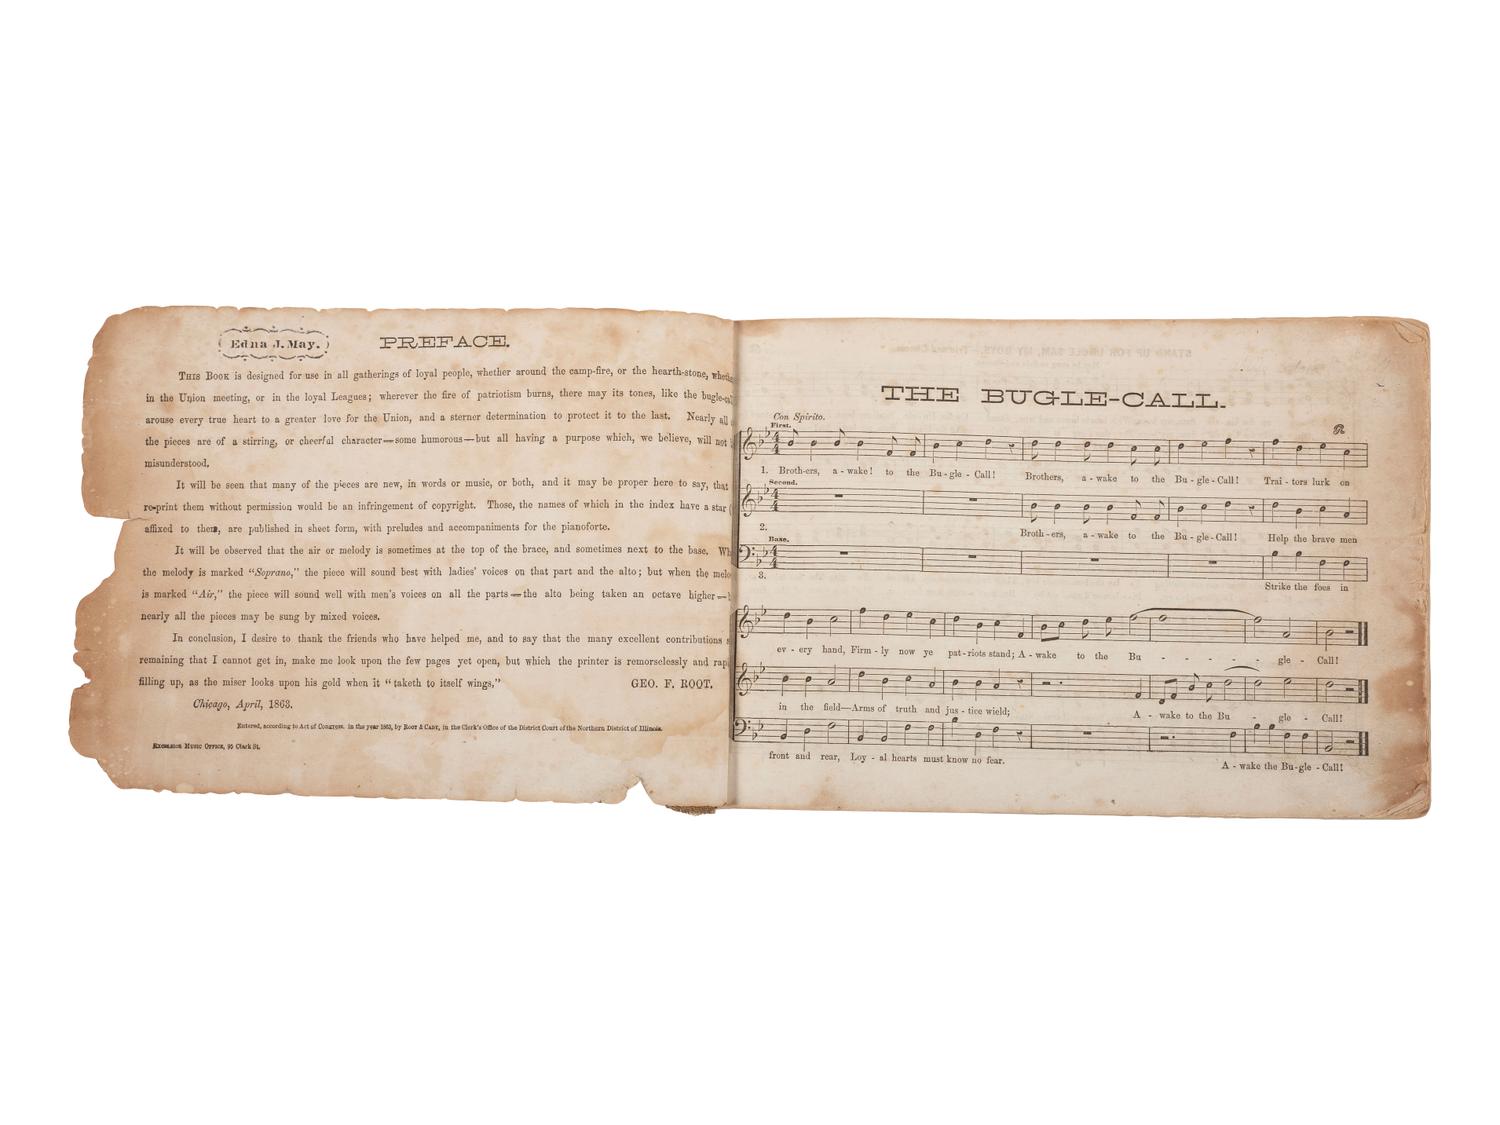 Edna J. May.
PREFACE.
THIS BOOK is designed for use in all gatherings of loyal people, whether around the camp-fire, or the hearth-stone,
in the Union meeting, or in the loyal Leagues; wherever the fire of patriotism burns, there may its tones, like the
arouse every true heart to a greater love for the Union, and a sterner determination to protect it to the last. Nearly all
the pieces are of a stirring, or cheerful character—some humorous—but all having a purpose which, we believe, will not
misunderstood.
It will be seen that many of the pieces are new, in words or music, or both, and it may be proper here to say, that
re-print them without permission would be an infringement of copyright. Those, the names of which in the index have a star (
affixed to them, are published in sheet form, with preludes and accompaniments for the pianoforte.
It will be observed that the air or melody is sometimes at the top of the brace, and sometimes next to the base.
the melody is marked “Soprano,” the piece will sound best with ladies' voices on that part and the alto; but when the
is marked “Air,” the piece will sound well with men's voices on all the parts—the alto being taken an octave higher—
nearly all the pieces may be sung by mixed voices.
In conclusion, I desire to thank the friends who have helped me, and to say that the many excellent contributions
remaining that I cannot get in, make me look upon the few pages yet open, but which the printer is remorselessly and
filling up, as the miser looks upon his gold when it “taketh to itself wings,” GEO. F. ROOT.
Chicago, April, 1863.
Entered, according to Act of Congress, in the year 1863, by ROOT & CADY, in the Clerk's Office of the District Court of the Northern District of Illinois.
EXCELSIOR MUSIC OFFICE, 95 Clark St.
THE BUGLE-CALL.
Con Spirito.
First.
1. Broth-ers, a-wake! to the Bu-gle-Call! Brothers, a-wake to the Bu-gle-Call! Trai-tors lurk on
Second.
2. Broth-ers, a-wake to the Bu-gle-Call! Help the brave men
Base.
3. Strike the foes in
ev-ery hand, Firm-ly now ye pat-riots stand; A-wake to the Bu - - - - - gle - Call!
in the field—Arms of truth and jus-tice wield; A-wake to the Bu - gle - Call!
front and rear, Loy-al hearts must know no fear. A-wake the Bu-gle-Call!